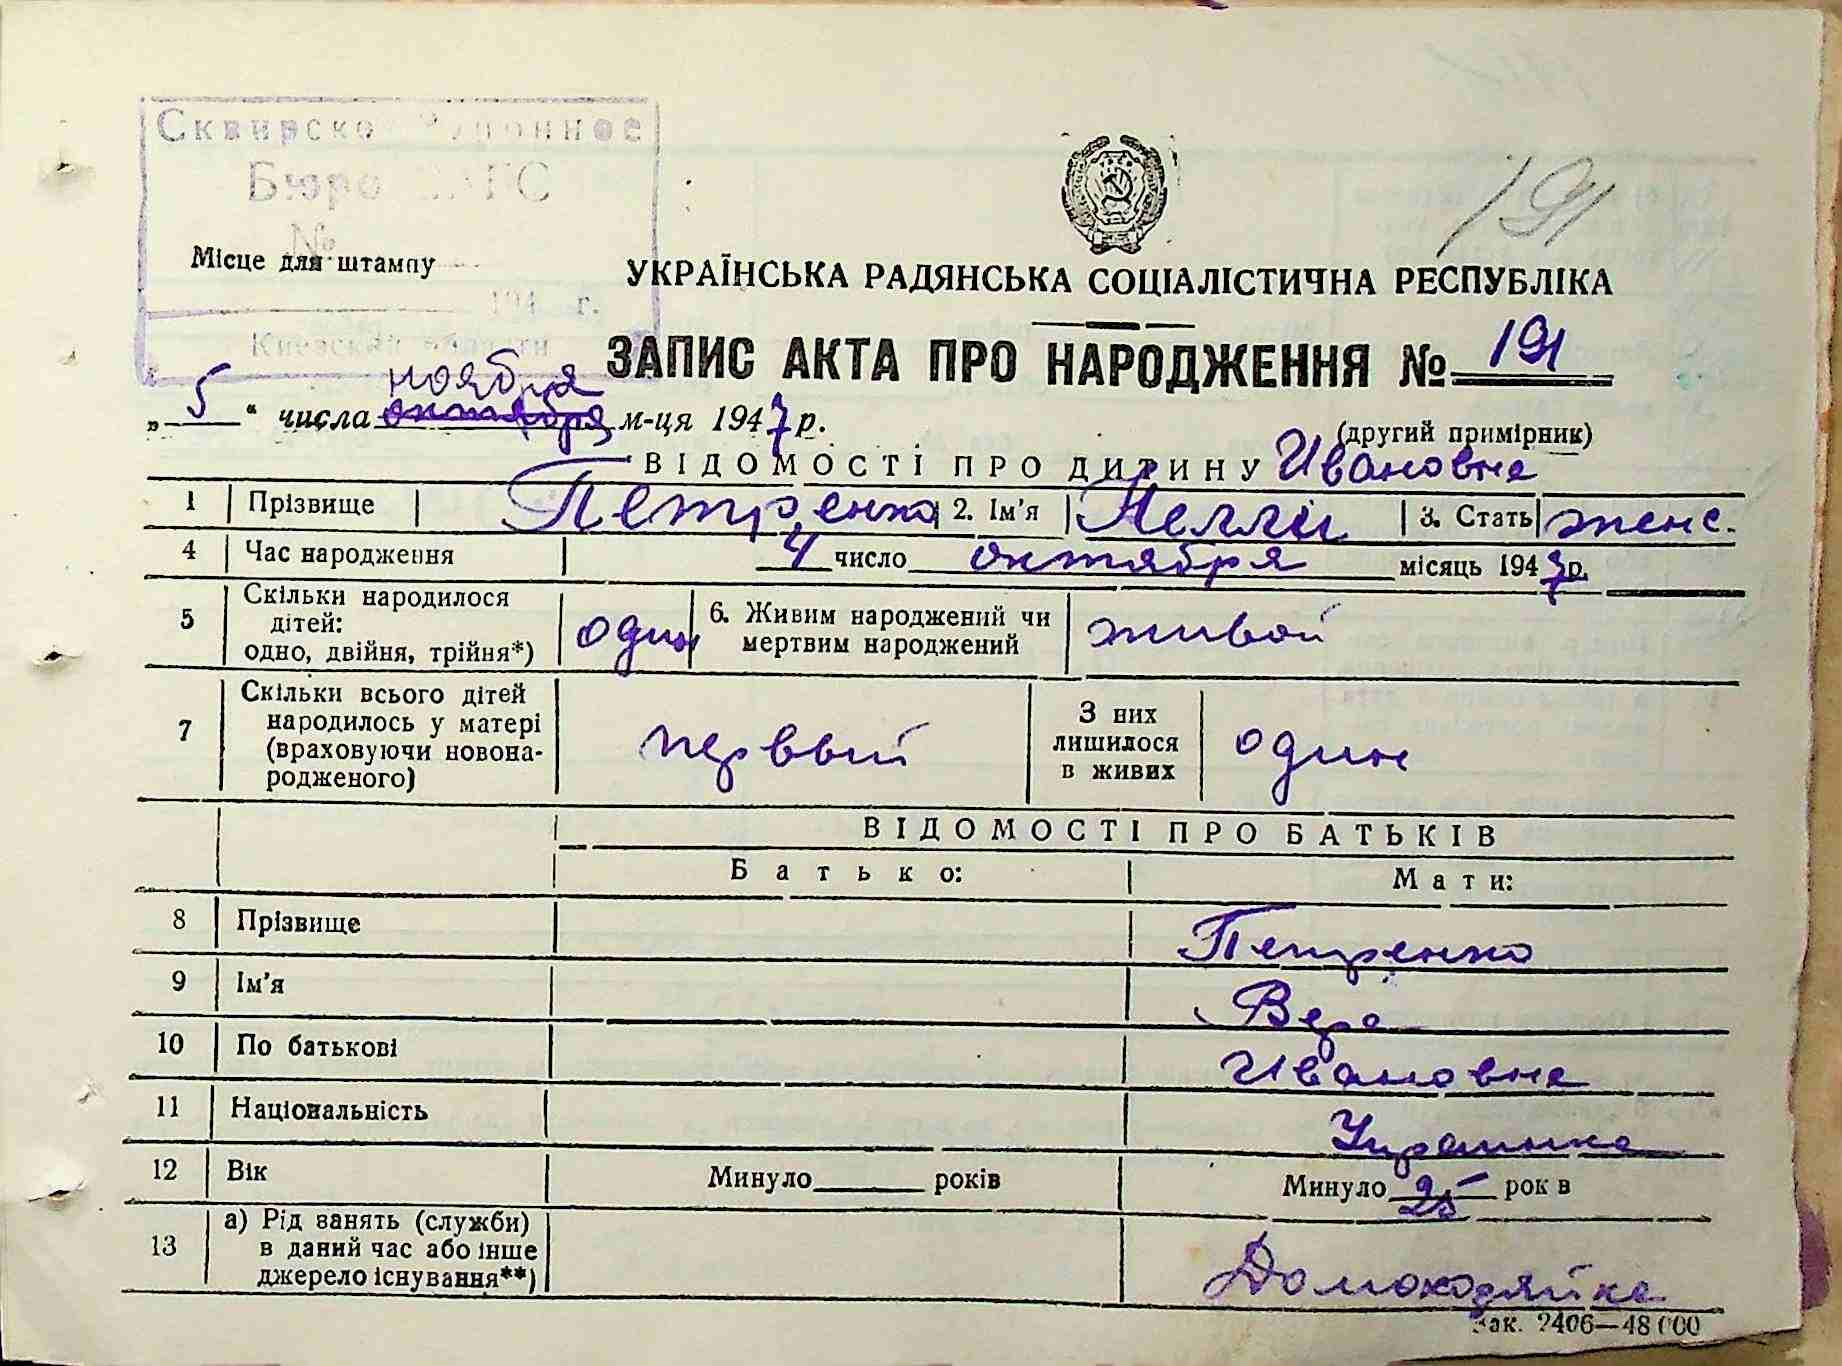 191
Сквирско Районное
Бюро ЗАГС
№
Місце для штампу
194 г.
Киевский области
УКРАЇНСЬКА РАДЯНСЬКА СОЦІАЛІСТИЧНА РЕСПУБЛІКА
ЗАПИС АКТА ПРО НАРОДЖЕННЯ № 191
ноября
„ 5 “ числа октября м-ця 1947 р.
(другий примірник)
ВІДОМОСТІ ПРО ДИТИНУ Ивановна
1 Прізвище Петренко 2. Ім'я Нелли 3. Стать женс.
4 Час народження 4 число октября місяць 1947 р.
5 Скільки народилося дітей: одно, двійня, трійня*) один 6. Живим народжений чи мертвим народжений живой
7 Скільки всього дітей народилось у матері (враховуючи новонародженого) первый З них лишилося в живих один
ВІДОМОСТІ ПРО БАТЬКІВ
Батько: Мати:
8 Прізвище Петренко
9 Ім'я Вера
10 По батькові Ивановна
11 Національність Украинка
12 Вік Минуло років Минуло 25 рок в
13 а) Рід занять (служби) в даний час або інше джерело існування**) Домохозяйка
Зак. 2406—48 000